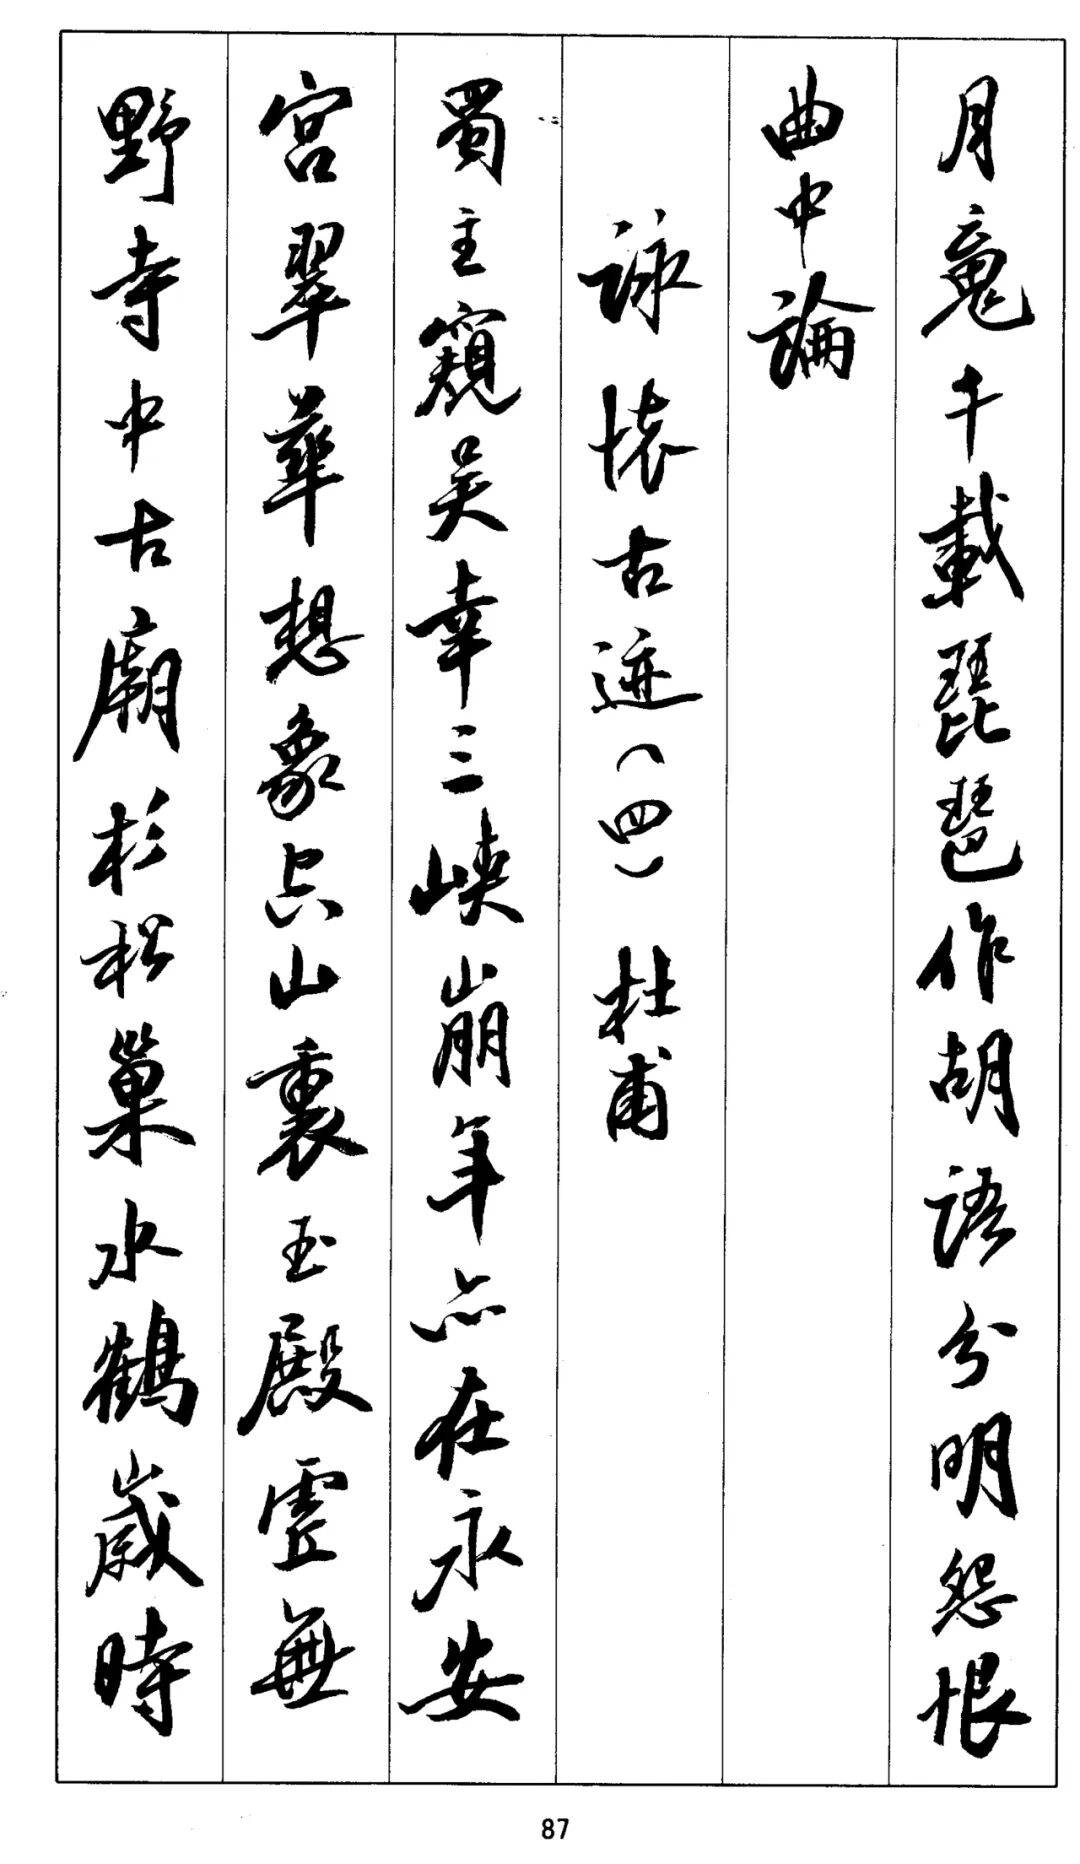 月魂千載琵琶作胡語分明怨恨
曲中論
詠懷古迹(四) 杜甫
蜀主窺吳幸三峽崩年亦在永安
宮翠華想象空山裏玉殿虛無
野寺中古廟杉松巢水鶴歲時
87